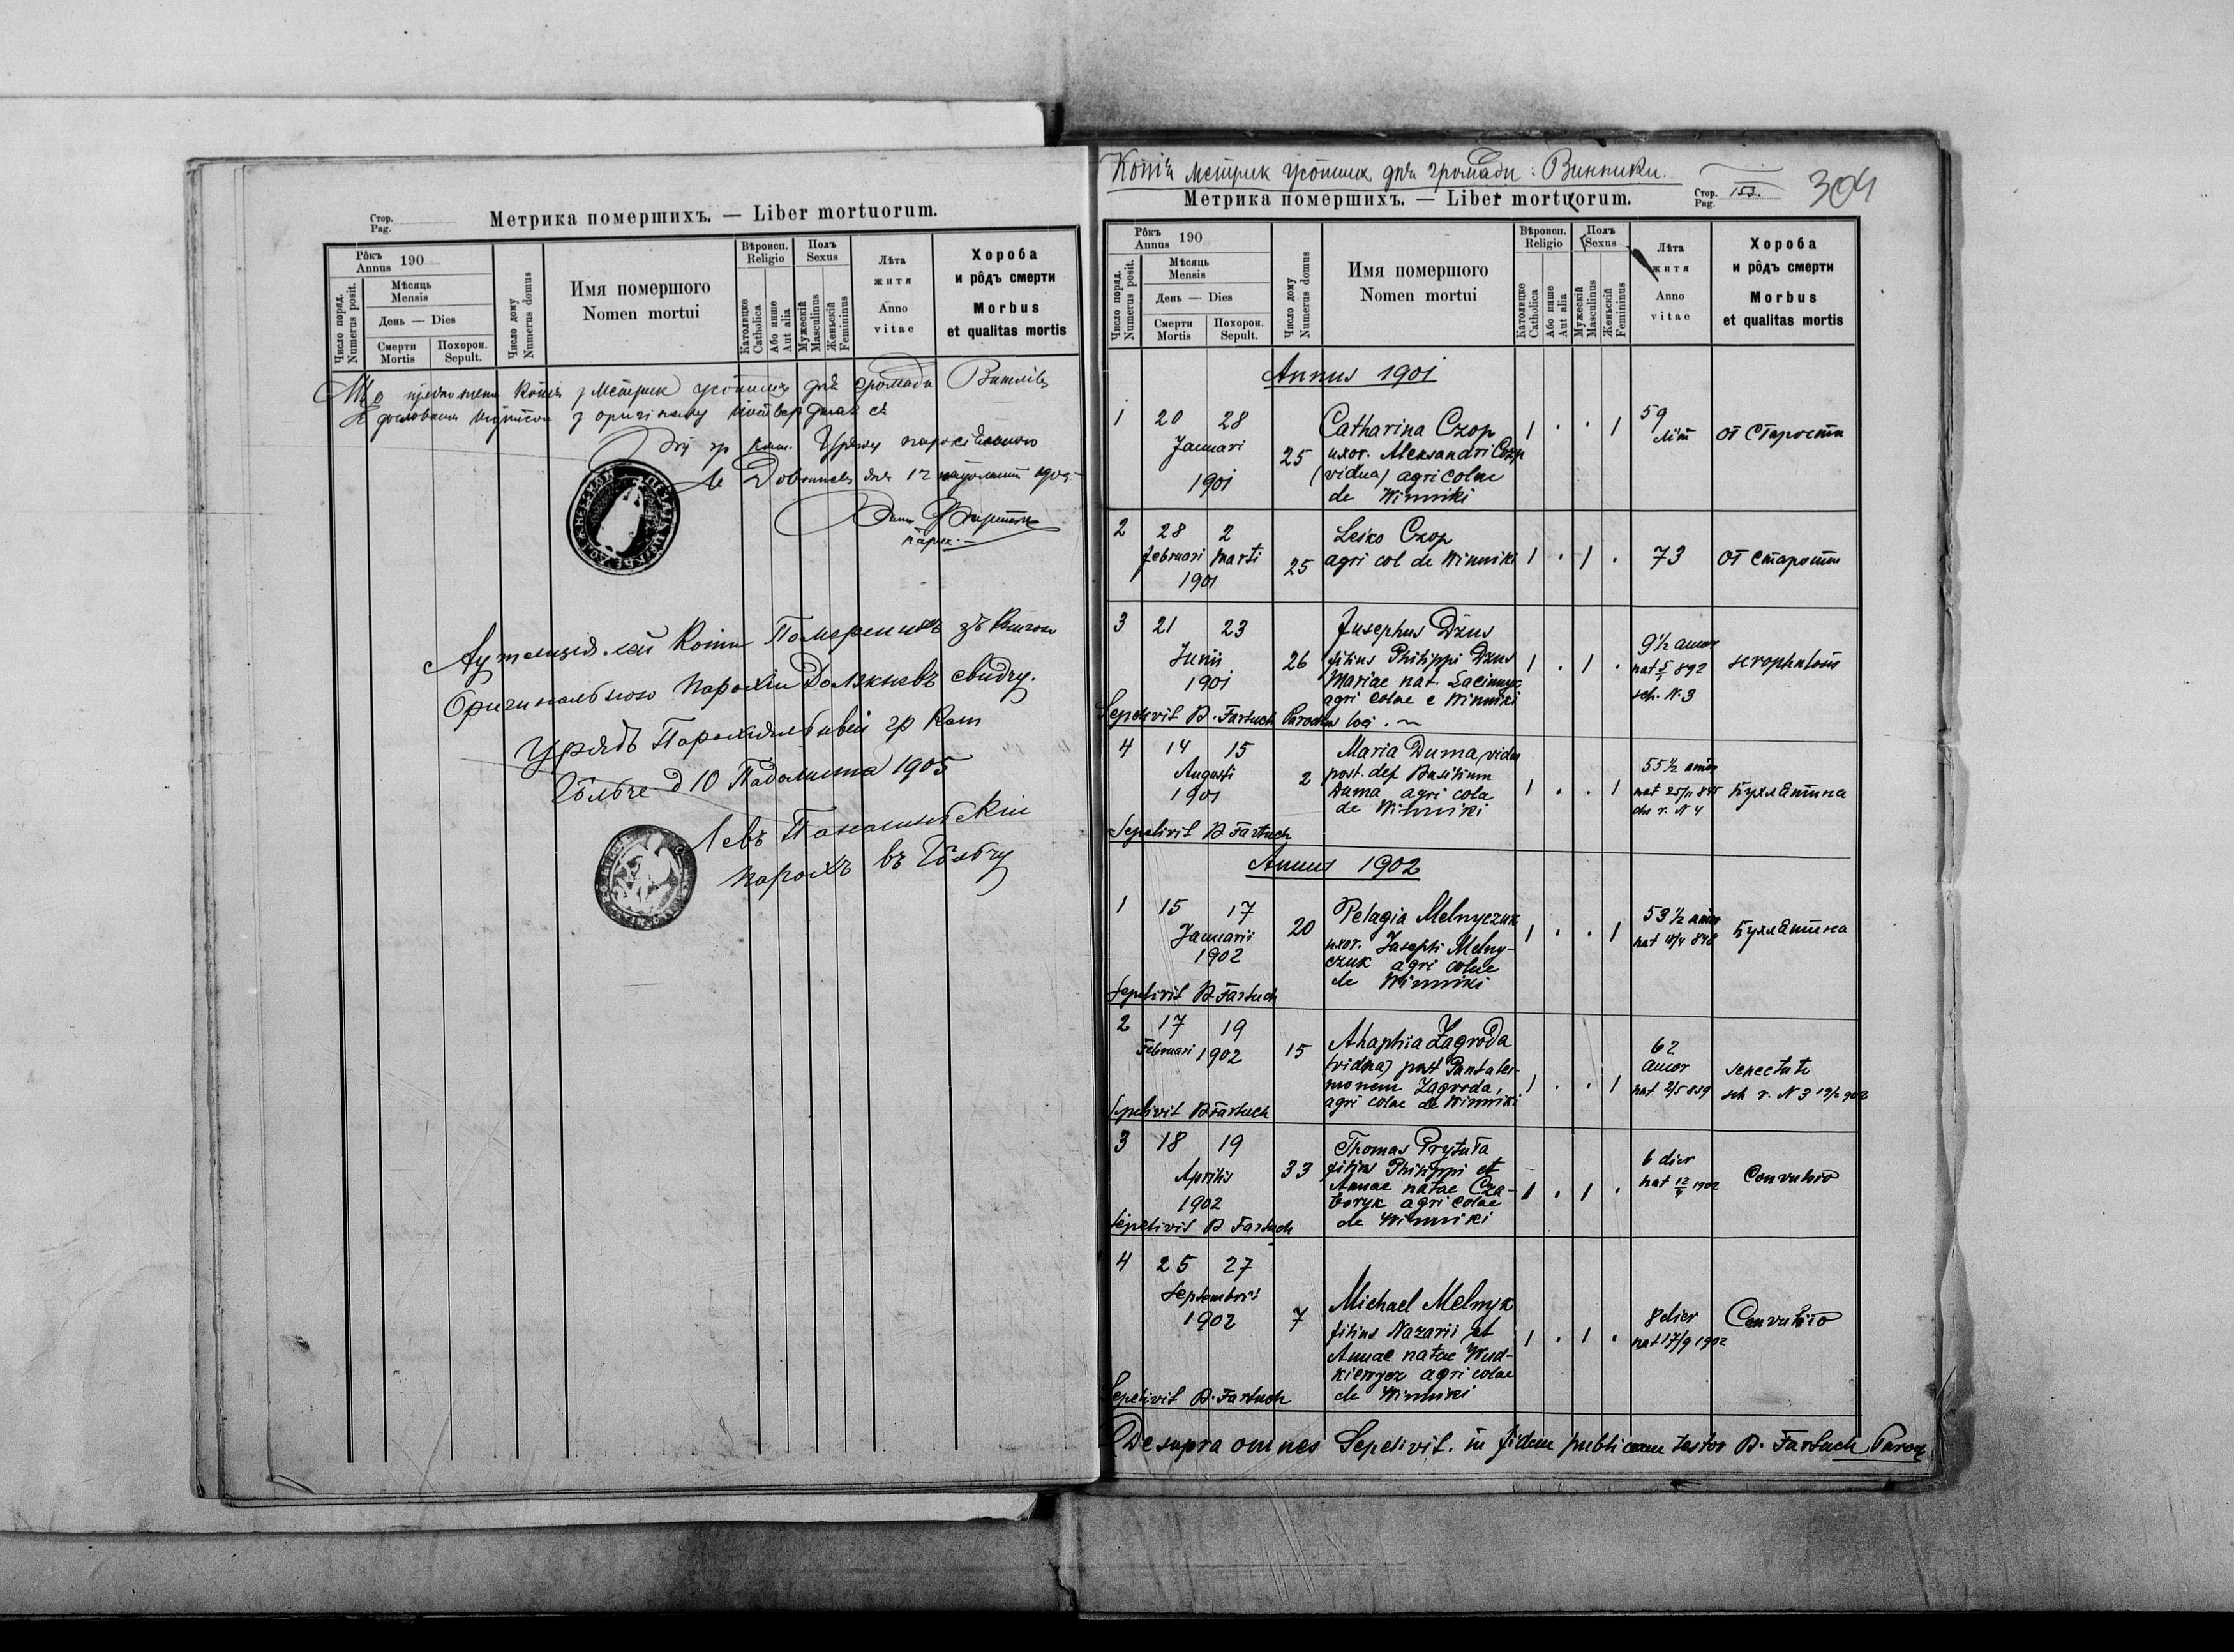 Стор.
Pag.
Метрика помершихъ. — Liber mortuorum.
Рôкъ
Annus 190
Число поряд.
Numerus posit.
Мѣсяць
Mensis
День — Dies
Смерти
Mortis
Похорон.
Sepult.
Число дому
Numerus domus
Имя помершого
Nomen mortui
Вѣроисп.
Religio
Католицке
Catholica
Або инше
Aut alia
Полъ
Sexus
Мужескій
Masculinus
Женьскій
Femininus
Лѣта
житя
Anno
vitae
Хороба
и рôдъ смерти
Morbus
et qualitas mortis
Що копія з метрик усопших для громади
з оригіналу
гр. кат.
дня 12 падолиста 1905
парох.
копіи Помершихъ зъ
Оригинального парохіи свидчу.
Урядъ Парохіяльный гр кат
д 10 Падолиста 1905
Левъ
парохъ въ
Копія метрик усопших для громади: Винники.
Метрика помершихъ. — Liber mortuorum.
Стор.
Pag. 153.
304
Рôкъ
Annus 190
Число поряд.
Numerus posit.
Мѣсяць
Mensis
День — Dies
Смерти
Mortis
Похорон.
Sepult.
Число дому
Numerus domus
Имя помершого
Nomen mortui
Вѣроисп.
Religio
Католицке
Catholica
Або инше
Aut alia
Полъ
Sexus
Мужескій
Masculinus
Женьскій
Femininus
Лѣта
житя
Anno
vitae
Хороба
и рôдъ смерти
Morbus
et qualitas mortis
Annus 1901
1 20 28 Januari 1901 25
Catharina Czop
uxor. Aleksandri Czop
(vidua) agricolae
de Winniki
1 . . 1
59 літ
от старости
2 28 2
februari Marti
1901 25
Lesko Czop
agri col de Winniki
1 . 1 . 73
от старости
3 21 23
Junii
1901 26
Josephus Dzus
filius Philippi Dzus
Mariae nat.
agri colae e Winniki
1 . 1 .
9½ annor
nat 5/1 892
sch. N. 3
scrophulosis
Sepelivit B. Fartuch Parochus loci.
4 14 15
Augusti
1901 2
Maria Duma, vidua
post. def Basilium
Duma agri cola
de Winniki
1 . . 1
55½ annor
nat 25/11 845
N 4
бухлятина
Sepelivit B Fartuch
Annus 1902
1 15 17
Januarii
1902 20
Pelagia Melnyczuk
uxor. Josephi Melny-
czuk agri colae
de Winniki
1 . . 1
53½ annor
nat 848
бухлятина
Sepelivit B Fartuch
2 17 19
Februari 1902 15
Ahaphia Zagroda
(vidua) post Pantalei-
monem Zagroda,
agri colae de Winniki
1 . . 1
62
annor
nat 2/5 839
senectute
sch r. N 3 902
Sepelivit B Fartuch
3 18 19
Aprilis
1902 33
Thomas Prytuła
filius Philippi et
Annae natae Cza-
boryk agri colae
de Winniki
1 . 1 .
6 dier
nat 12/4 1902
Convulsio
Sepelivit B Fartuch
4 25 27
Septembris
1902 7
Michael Melnyk
filius Nazarii et
Annae natae Wud-
kiewycz agri colae
de Winniki
1 . 1 .
8 dier
nat 17/9 1902
Convulsio
Sepelivit B. Fartuch
De supra omnes Sepelivit. in fidem publicam testor B. Fartuch Paroch